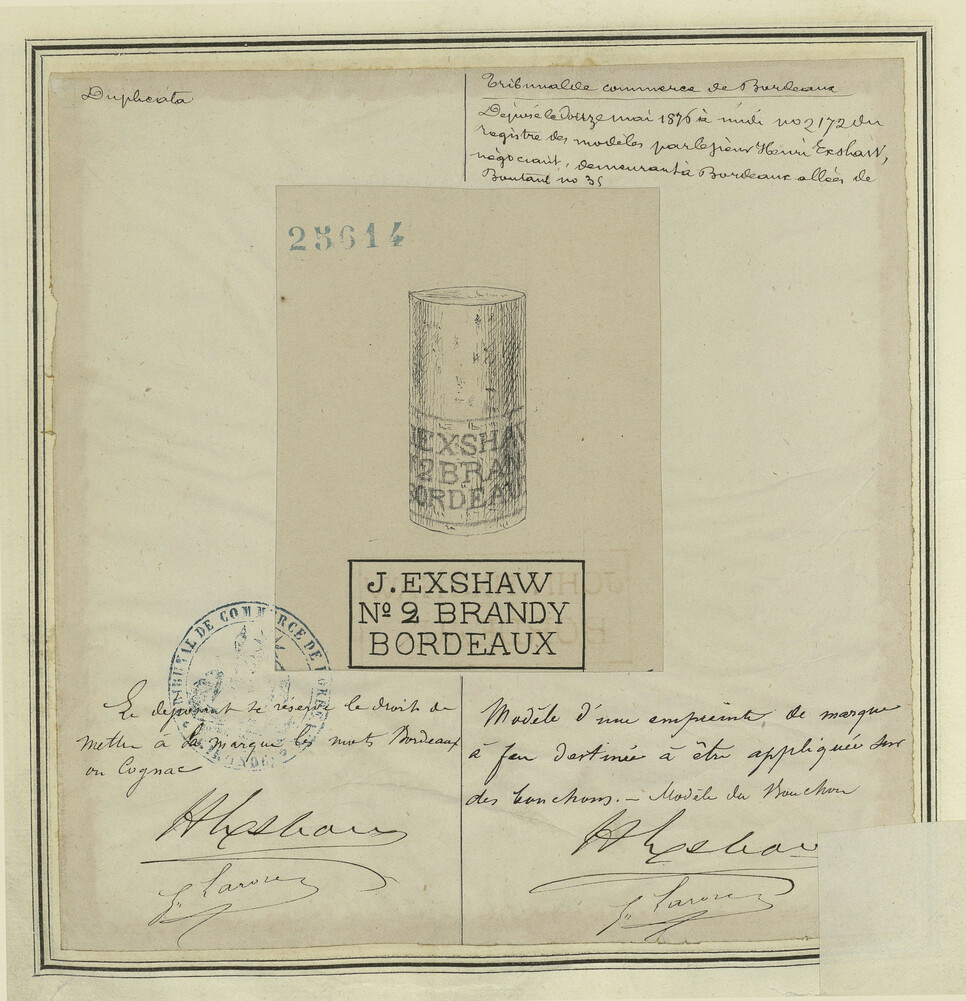 Duplicata
Tribunal de commerce de Bordeaux
Déposé le onze mai 1876 à midi no 2172 du
registre des modèles par le sieur Henri Exshaw,
négociant, demeurant à Bordeaux allées de
Boutaut no 35
25614
EXSHAW
2 BRAN
BORDEAU
J. EXSHAW
Nº 2 BRANDY
BORDEAUX
TRIBUNAL DE COMMERCE DE BORDEAUX
Le déposant se réserve le droit de
mettre à la marque les mots Bordeaux
ou Cognac
HExshaw
Modèle d'une empreinte de marque
à feu destinée à être appliquée sur
des bouchons. – Modèle du Bouchon
HExshaw